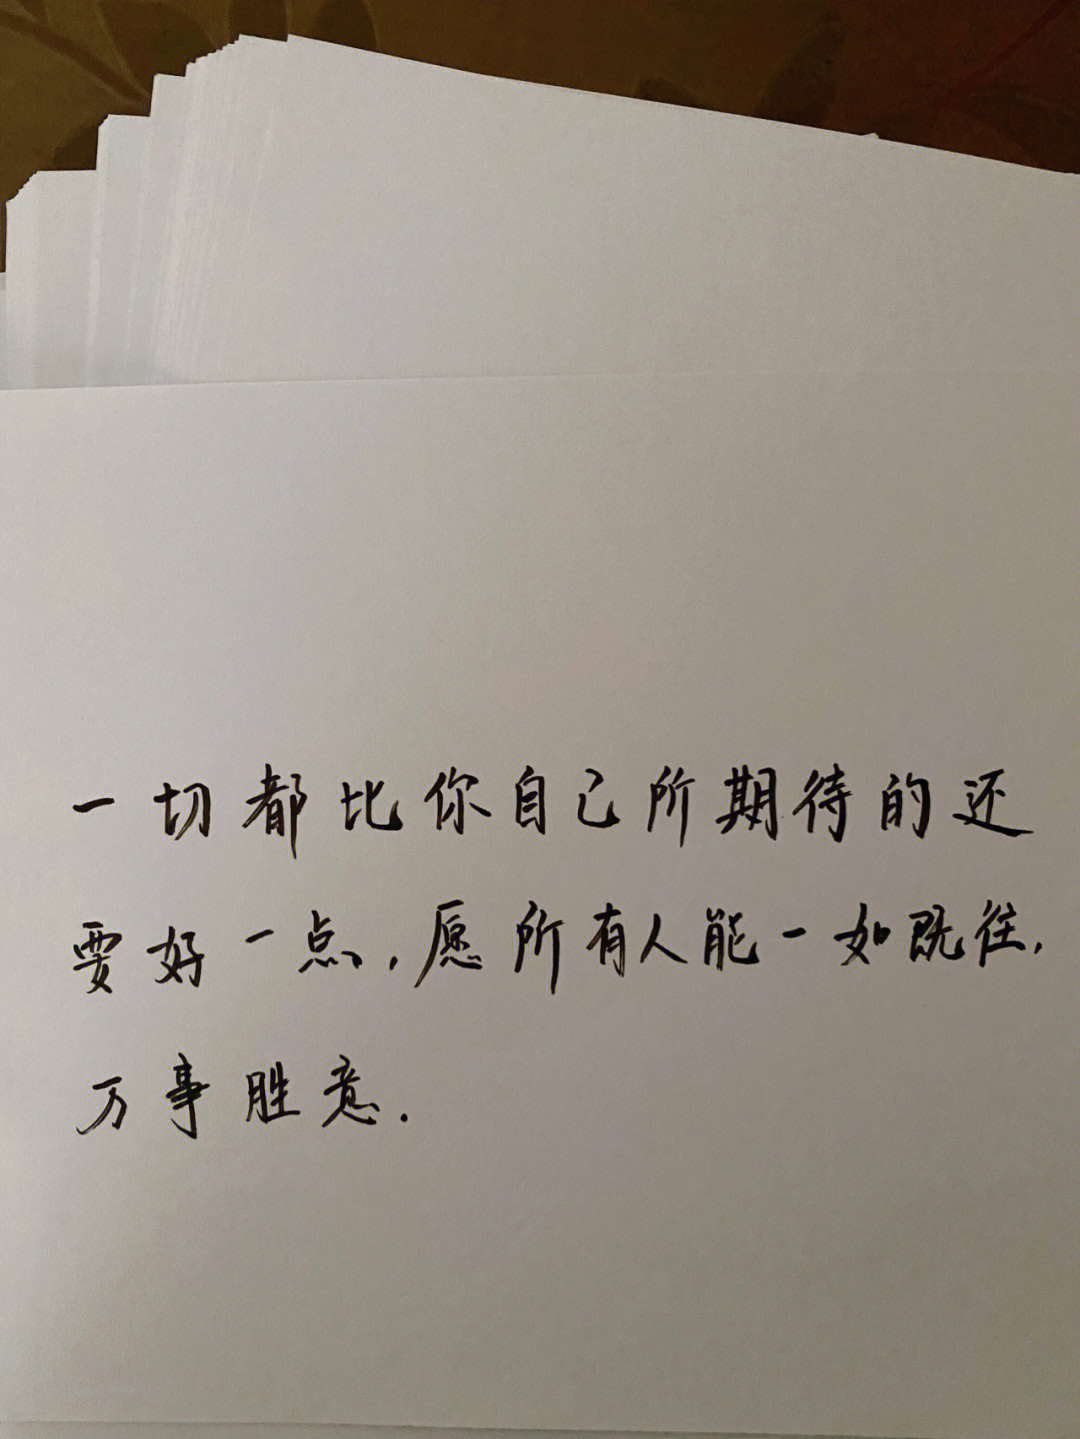 一切都比你自己所期待的还
要好一点,愿所有人能一如既往,
万事胜意.